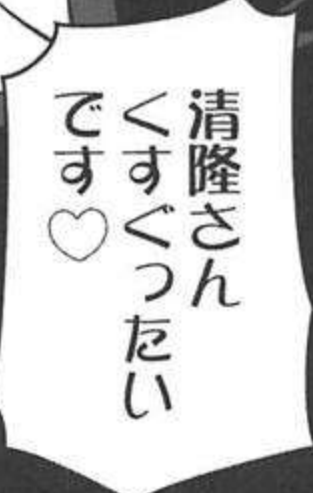 清隆さん
くすぐったい
です♡